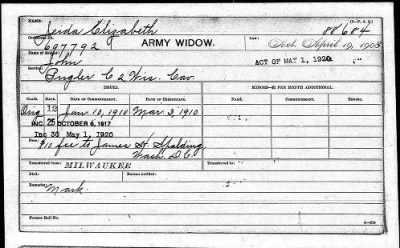 (3-P. A. S.)
NAME: Jerda Elizabeth 88684
Certificate No. 697792 ARMY WIDOW. Law: Act April 19, 1908
Name of Soldier: John ACT OF MAY 1, 1920.
Service: Bugler C 2 Wis. Cav.
ISSUES. MINORS—$2 PER MONTH ADDITIONAL.
CLASS. RATE. DATE OF COMMENCEMENT. DATE OF CERTIFICATE. NAME. COMMENCING. ENDING.
Orig 12 Jan. 10, 1910 Mar. 3, 1910
INC. 25 OCTOBER 6, 1917
Inc 30 May 1, 1920
$10 fee to James H. Spalding,
Wash. D.C.
Transferred from: MILWAUKEE Transferred to:
Died: Bureau notified:
Remarks: Mark.
Former Roll No.